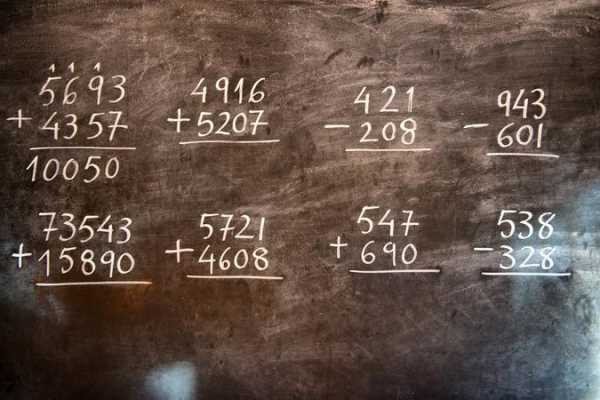 1 1 1
5693
+ 4357
10050
4916
+ 5207
421
- 208
943
- 601
73543
+ 15890
5721
+ 4608
547
+ 690
538
- 328